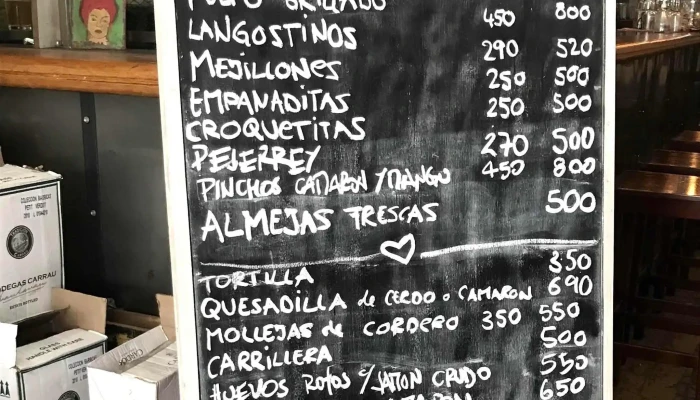 LANGOSTINOS 450 800
MEJILLONES 290 520
EMPANADITAS 250 500
CROQUETITAS 250 500
PEJERREY 270 500
PINCHOS CAMARON Y MANGO 450 800
ALMEJAS FRESCAS 500
TORTILLA 350
QUESADILLA de CERDO o CAMARON 690
MOLLEJAS de CORDERO 350 550
CARRILLERA 500
HUEVOS ROTOS c/JAMON CRUDO 550
650
BODEGAS CARRAU